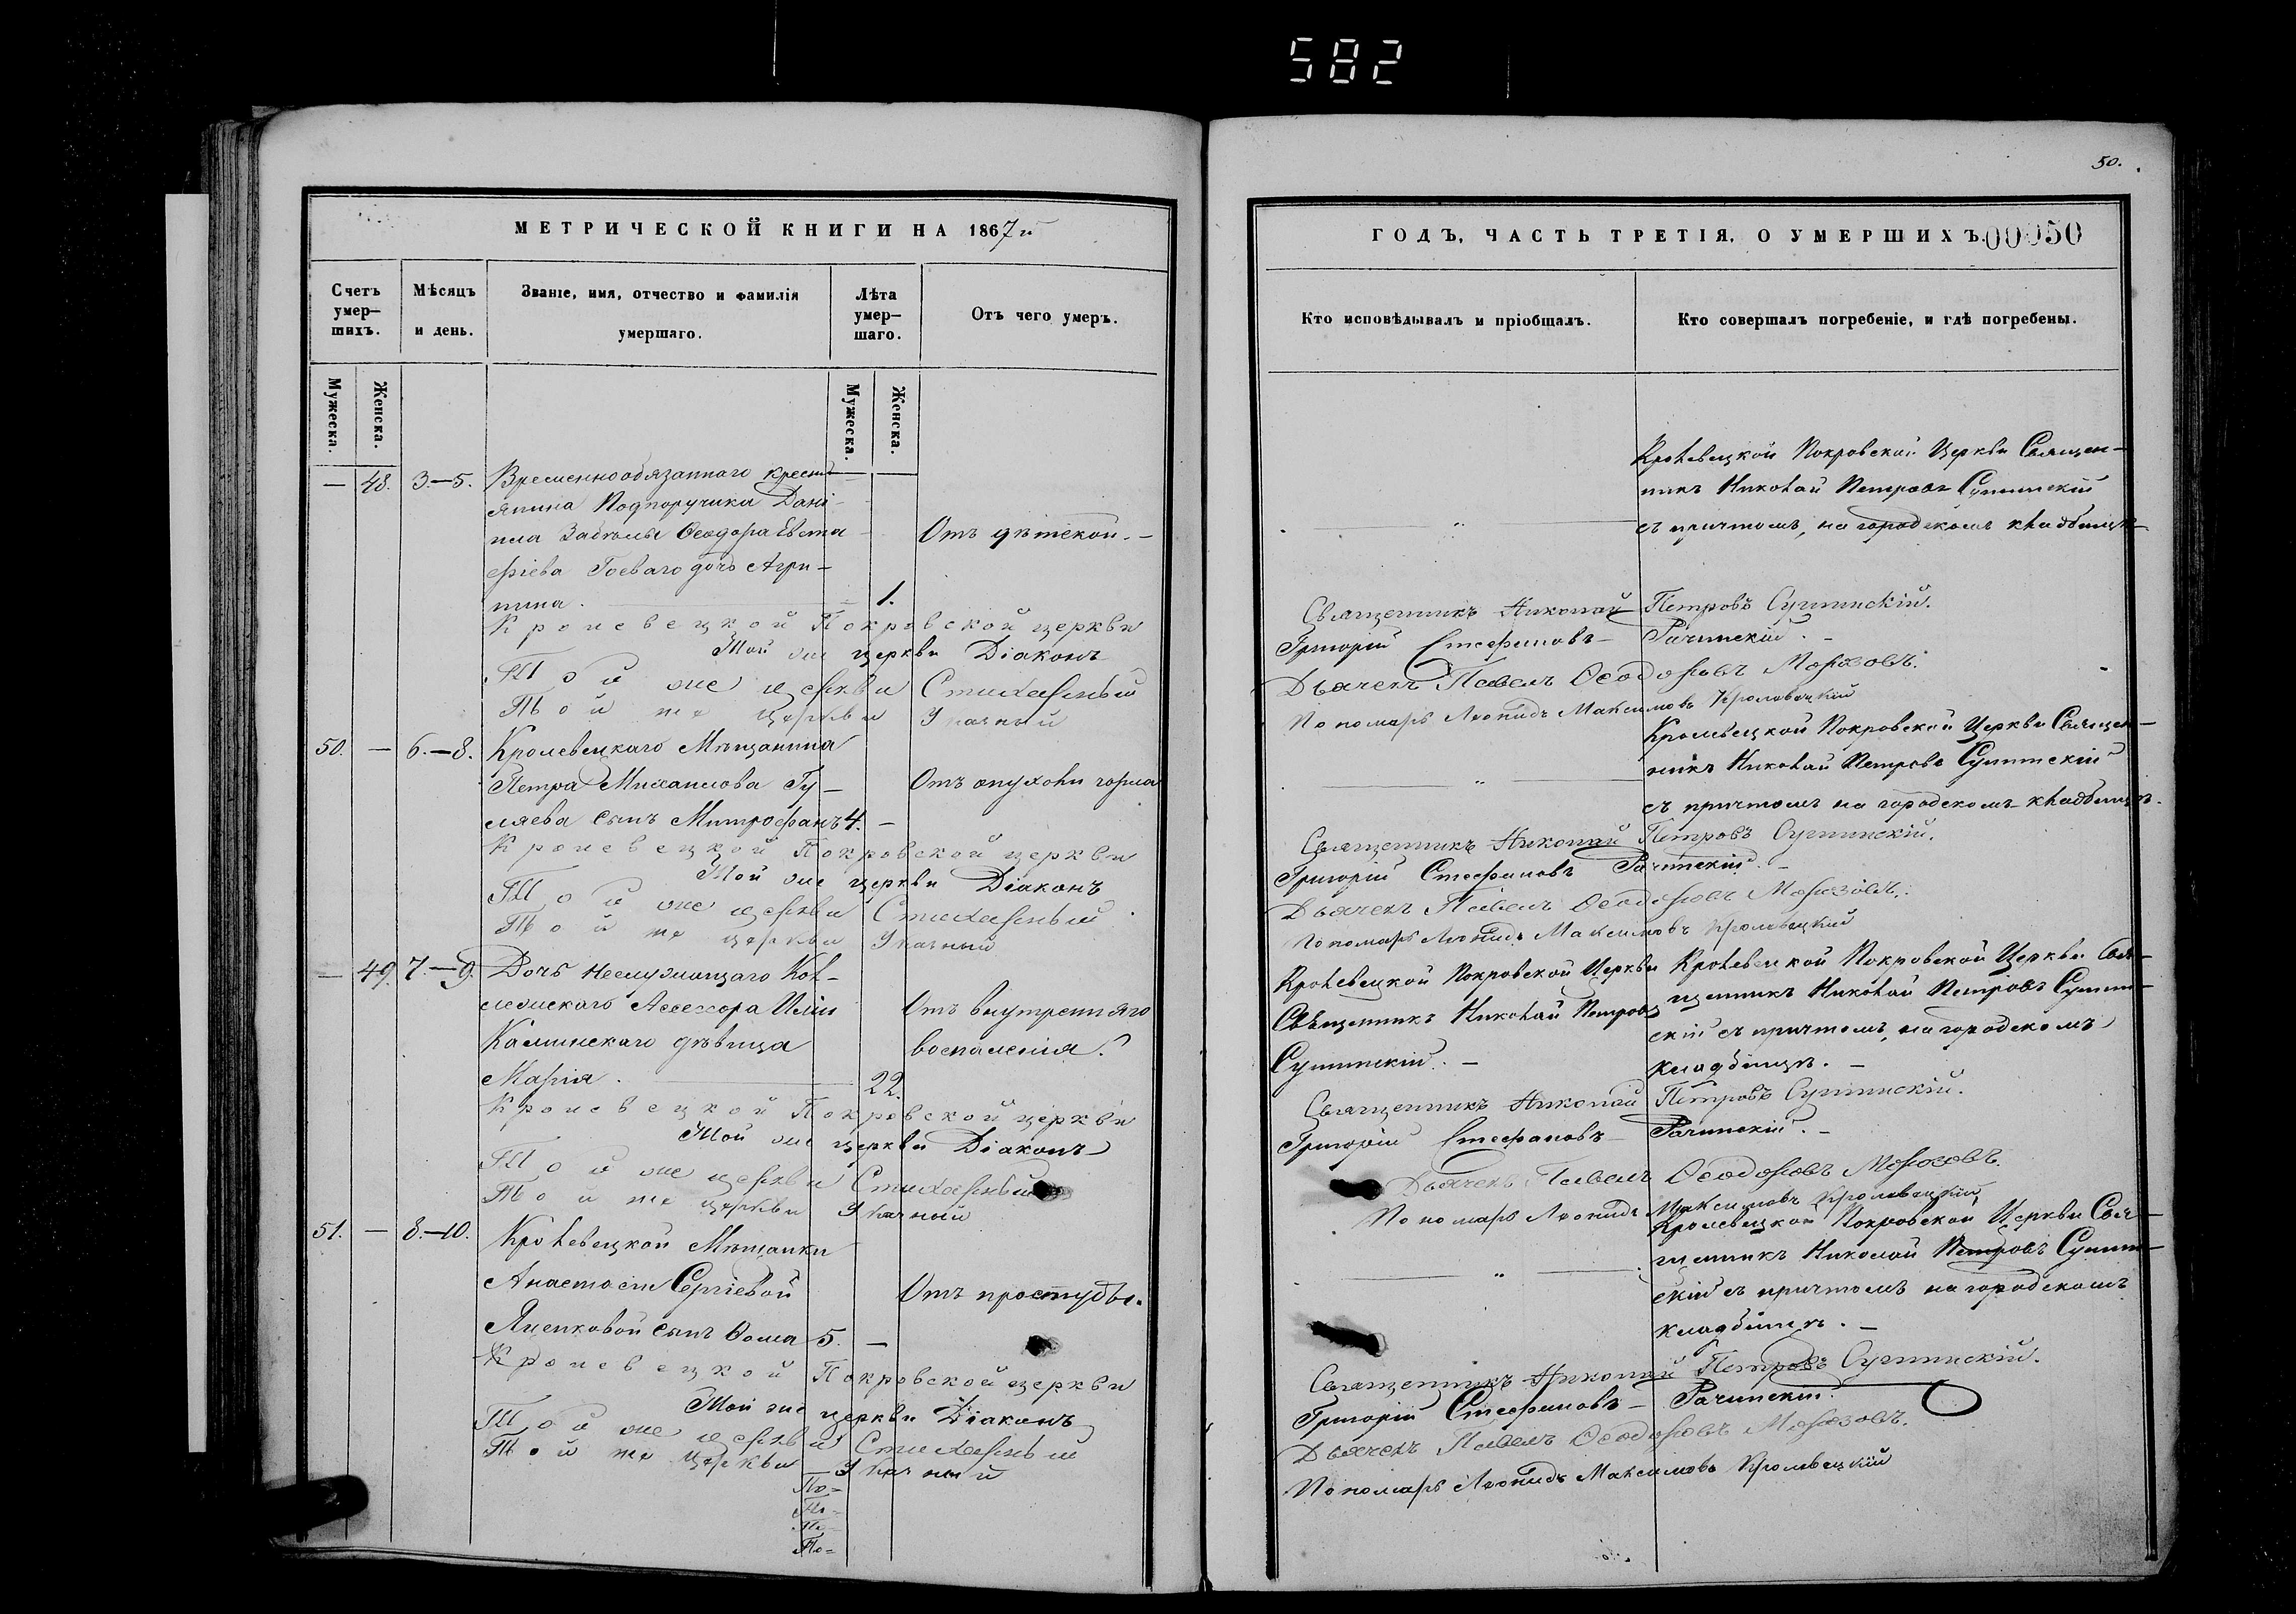 582
50.
МЕТРИЧЕСКОЙ КНИГИ НА 1867 г.
Счетъ умер-шихъ.
Мѣсяцъ и день.
Званіе, имя, отчество и фамилія умершаго.
Лѣта умер-шаго.
Отъ чего умеръ.
Мужеска.
Женска.
Мужеска.
Женска.
— 48. 3.—5. Временнообязаннаго кресть-
янина Подпоручика Дані-
ила Забѣлы Ѳеодора Евста-
фіева Гоеваго дочь Агри-
пина. 1.
Отъ дѣтской.
Кролевецкой Покровской церкви
Той же церкви Діаконъ
Той же церкви Стихарный
Той же церкви Указный
50. — 6.—8. Кролевецкаго Мѣщанина
Петра Михаилова Гу-
ляева сынъ Митрофанъ 4. —
Отъ опухоли горла
Кролевецкой Покровской церкви
Той же церкви Діаконъ
Той же церкви Стихарный
Той же церкви Указный
— 49. 7.—9. Дочь неслужащаго Кол-
лежскаго Ассесора Иліи
Калинскаго дѣвица
Марія. 22.
Отъ внутренняго
воспаленія.
Кролевецкой Покровской церкви
Той же церкви Діаконъ
Той же церкви Стихарный
Той же церкви Указный
51. — 8.—10. Кролевецкой Мѣщанки
Анастасіи Сергіевой
сынъ Ѳома 5. —
Отъ простуды.
Кролевецкой Покровской церкви
Той же церкви Діаконъ
Той же церкви Стихарный
Той же церкви Указный
По-
По-
По-
По-
ГОДЪ, ЧАСТЬ ТРЕТІЯ, О УМЕРШИХЪ. 00050
Кто исповѣдывалъ и пріобщалъ.
Кто совершалъ погребеніе, и гдѣ погребены.
Кролевецкой Покровской Церкви Священ-
никъ Николай Петровъ Сушинскій
— " — съ причтомъ, на городскомъ кладбищѣ
Священникъ Николай Петровъ Сушинскій.
Григорій Стефановъ Рачинскій.
Дьячекъ Павелъ Ѳеодоровъ Морозовъ.
Пономарь Леонидъ Максимовъ Кролевецкій
Кролевецкой Покровской Церкви Священ-
никъ Николай Петровъ Сушинскій
— " —
съ причтомъ на городскомъ кладбищѣ.
Священникъ Николай Петровъ Сушинскій.
Григорій Стефановъ Рачинскій.
Дьячекъ Павелъ Ѳеодоровъ Морозовъ.
Пономарь Леонидъ Максимовъ Кролевецкій
Кролевецкой Покровской Церкви
Священникъ Николай Петровъ
Сушинскій.
Кролевецкой Покровской Церкви Свя-
щенникъ Николай Петровъ Сушин-
скій съ причтомъ, на городскомъ
кладбищѣ.
Священникъ Николай Петровъ Сушинскій.
Григорій Стефановъ Рачинскій.
Дьячекъ Павелъ Ѳеодоровъ Морозовъ.
Пономарь Леонидъ Максимовъ Кролевецкій
Кролевецкой Покровской Церкви Свя-
щенникъ Николай Петровъ Сушин-
— " —
скій съ причтомъ на городскомъ
кладбищѣ.
Священникъ Николай Петровъ Сушинскій.
Григорій Стефановъ Рачинскій.
Дьячекъ Павелъ Ѳеодоровъ Морозовъ.
Пономарь Леонидъ Максимовъ Кролевецкій